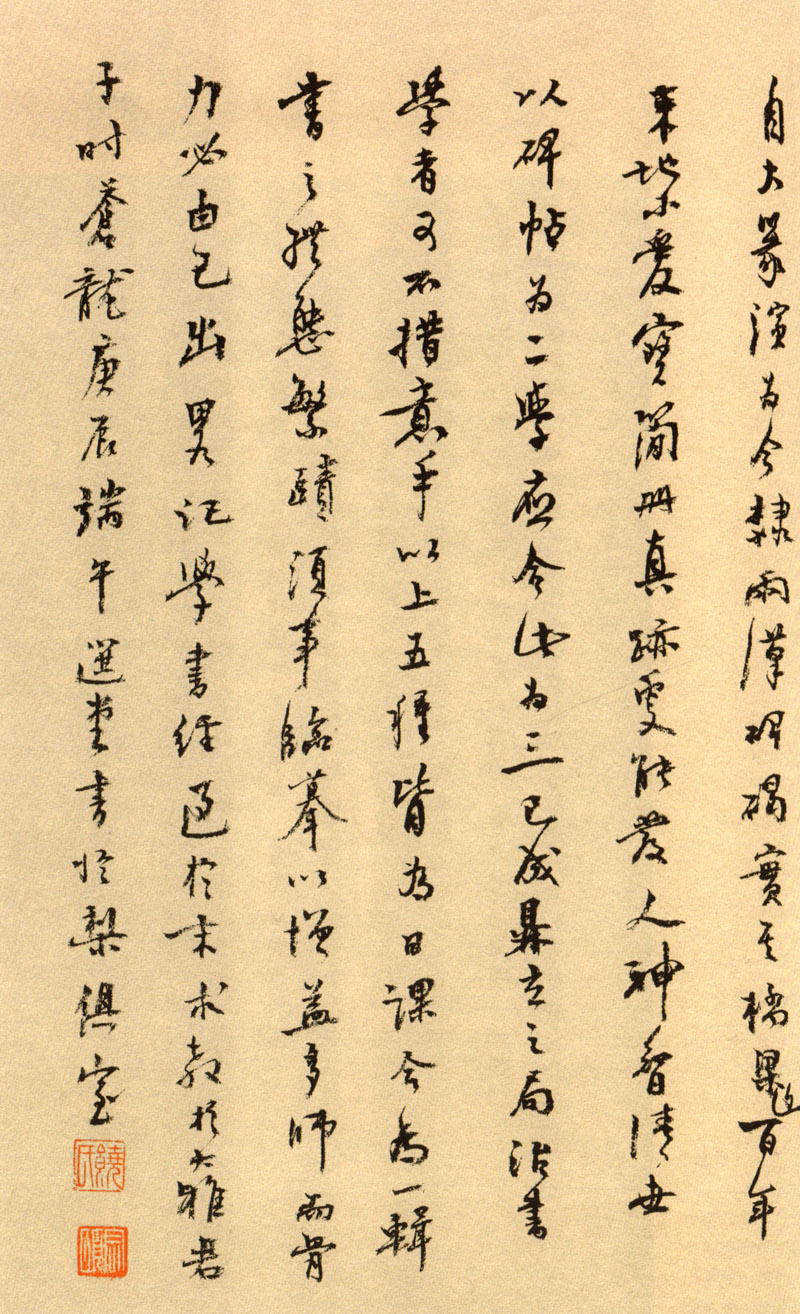 自大篆演為今隸兩漢碑碣實其橋梁近百年
來地不愛寶簡冊真跡更能發人神智清世
以碑帖為二學應合此為三已成鼎立之局治書
學者可不措意乎以上五種皆為日課今為一輯
書之體態繁賾須事臨摹以增益多師而骨
力必由己出畧記學書經過於末求教於大雅君
子時蒼龍庚辰端午選堂書於梨俱室
饒氏
宗頤